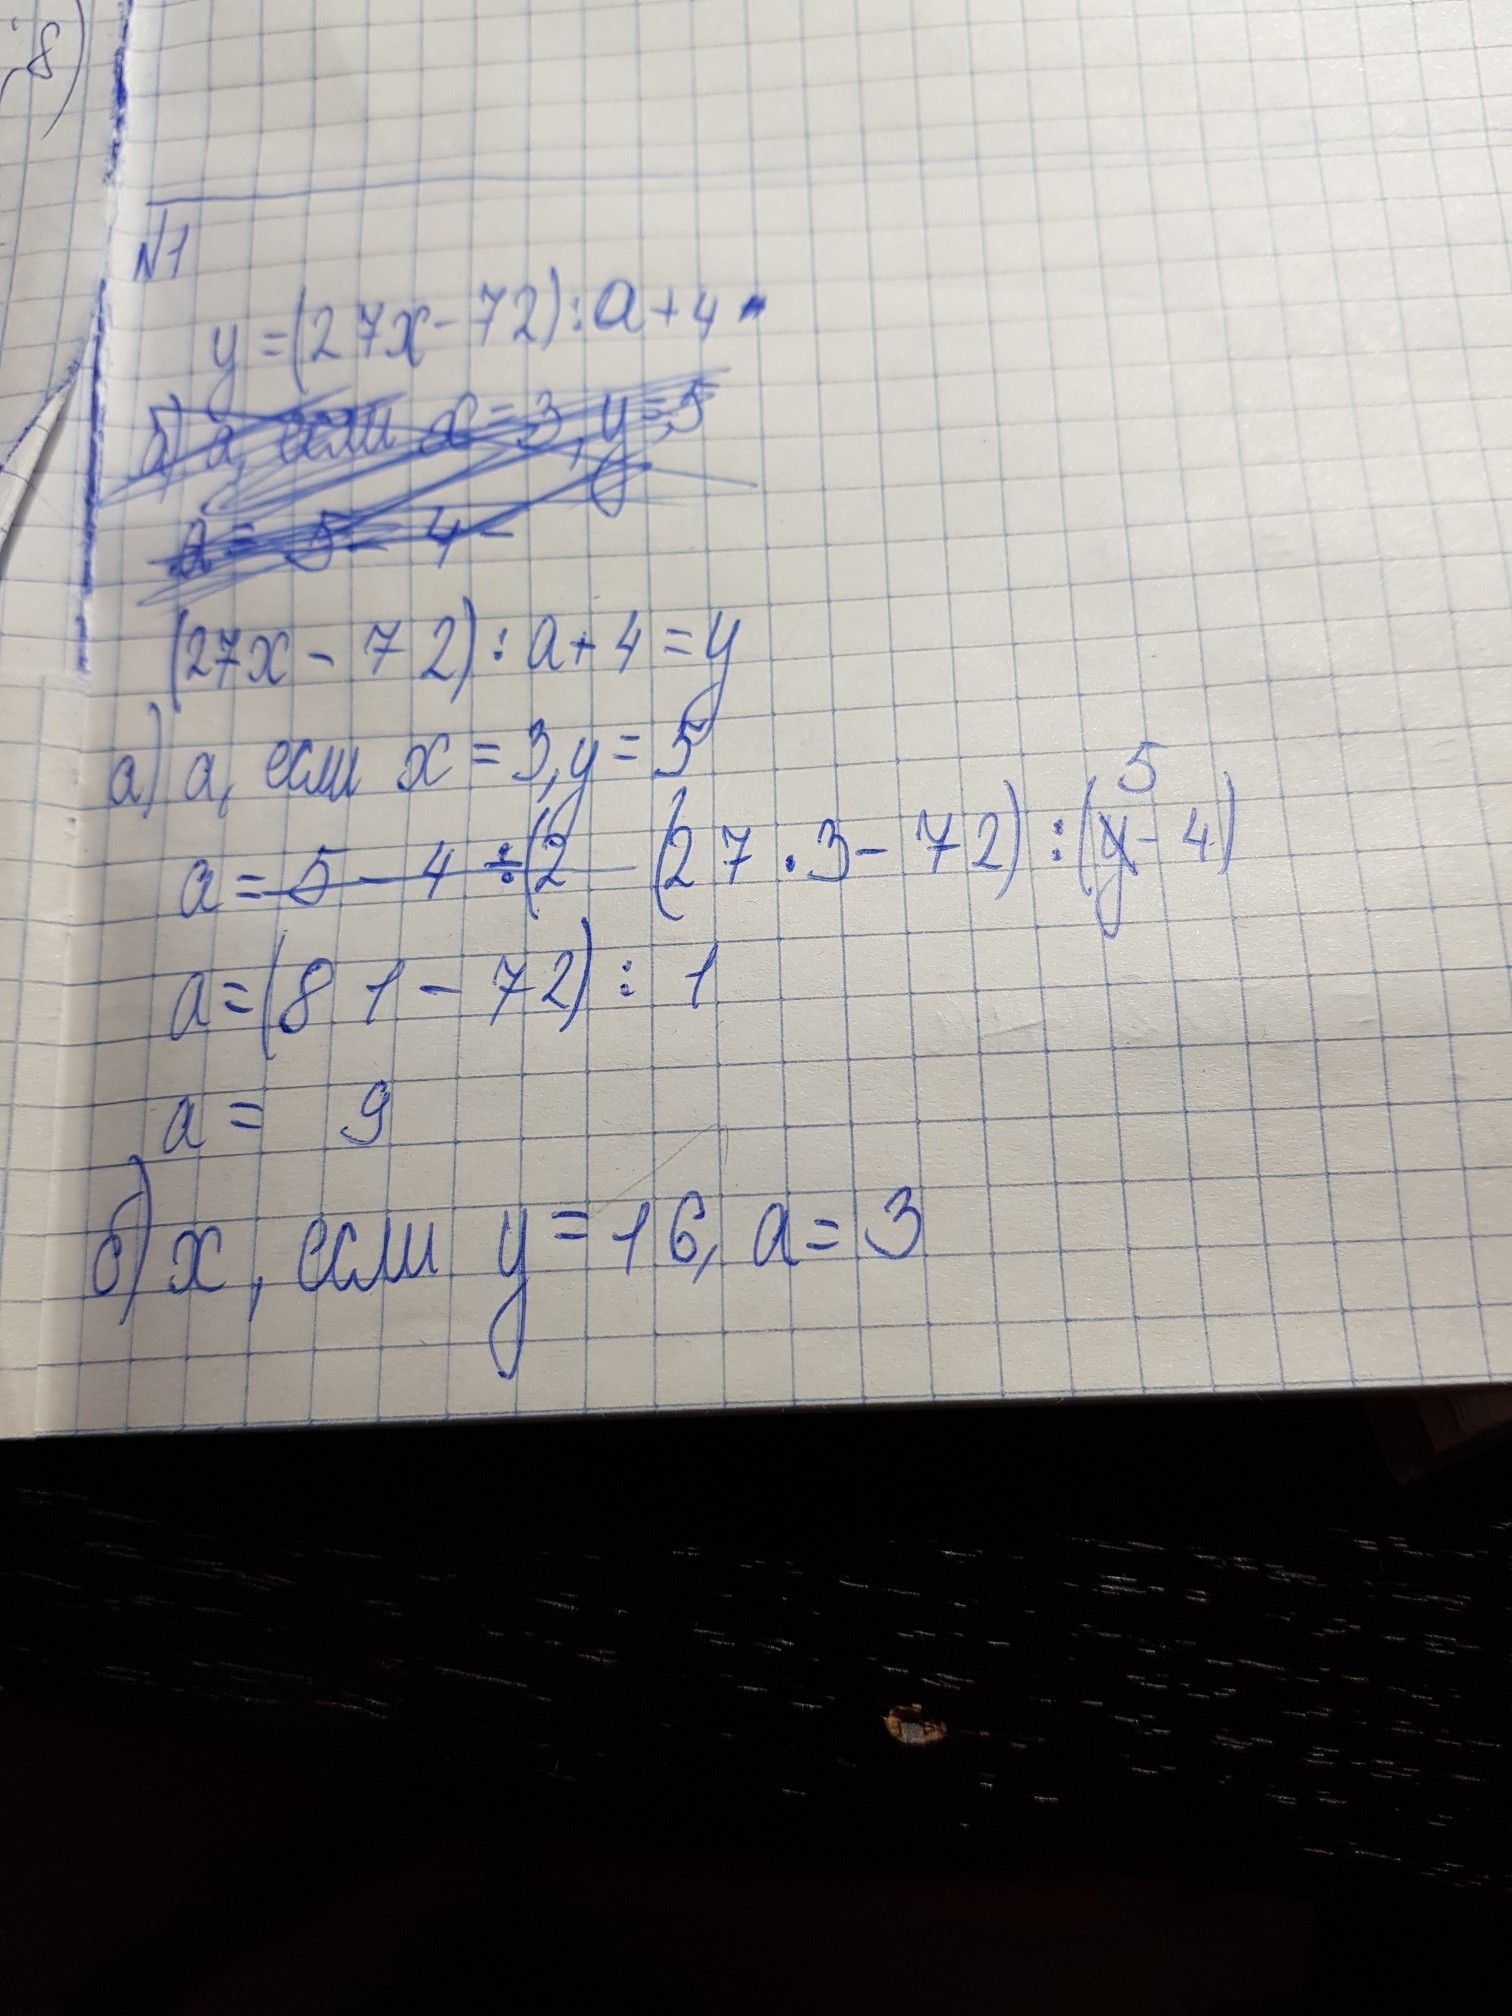 ,8)
№1
y=(27x-72):a+4
б) a, если x=3, y=5
a= 5- 4-
(27x-72):a+4=y
а) a, если x=3, y=5
a= 5-4 ÷(2 (27·3-72):(y-4) 5
a=(81-72):1
a= 9
б) x, если y=16, a=3